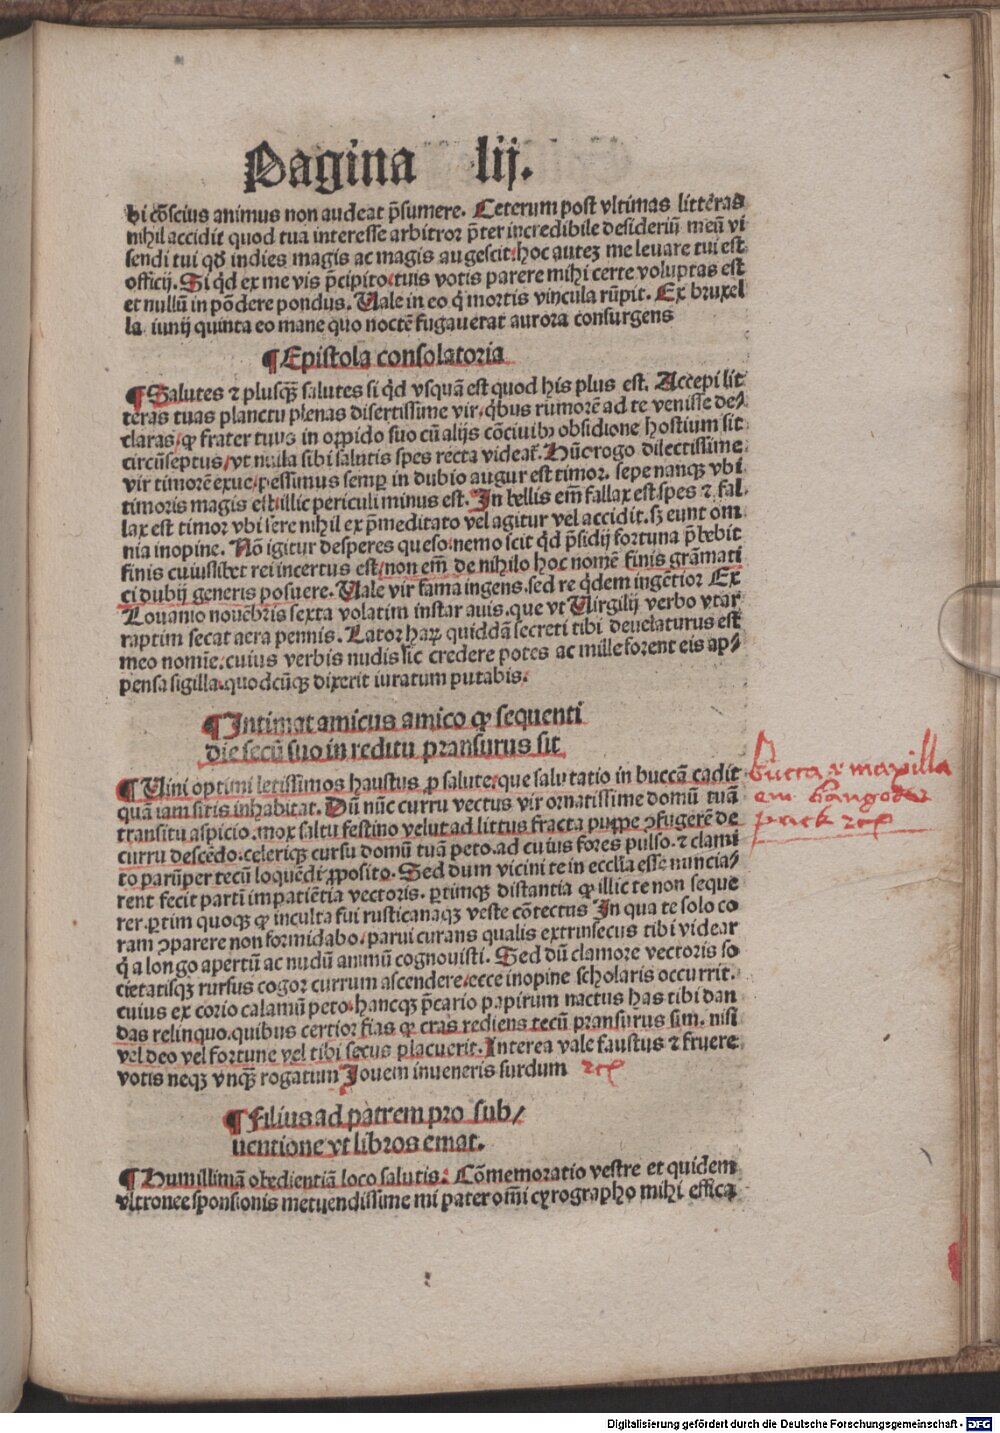 Pagina lij.
bi cōscius animus non audeat p̄sumere. Ceterum post vltimas litteras
nihil accidit quod tua interesse arbitror p̄ter incredibile desideriū meū vi
sendi tui qd̄ indies magis ac magis augescit: hoc autez me leuare tui est
officij. Si qd̄ ex me vis p̄cipito: tuis votis parere mihi certe voluptas est
et nullū in pōdere pondus. Uale in eo q̄ mortis vincula rūpit. Ex bruxel
la. iunij quinta eo mane quo noctē fugauerat aurora consurgens
¶ Epistola consolatoria
¶ Salutes ⁊ plusqꝫ salutes si qd̄ vsquā est quod his plus est. Accepi lit
teras tuas planctu plenas disertissime vir, qͥbus rumorē ad te venisse de⸗
claras, ꝙ frater tuus in oppido suo cū alijs cōciuibꝫ obsidione hostium sit
circūseptus, vt nulla sibi salutis spes recta videat̄. Hūc rogo dilectissime
vir timorē exue, pessimus semꝑ in dubio augur est timor. sepe nanqꝫ vbi
timoris magis est: illic periculi minus est. In bellis em̄ fallax est spes ⁊ fal
lax est timor vbi fere nihil ex p̄meditato vel agitur vel accidit. sꝫ eunt om
nia inopine. Nō igitur desperes queso: nemo scit qd̄ p̄sidij fortuna p̄bebit
finis cuiuslibet rei incertus est, non em̄ de nihilo hoc nomē finis grāmati
ci dubij generis posuere. Uale vir fama ingens. sed re qͥdem ingētior Ex
Louanio nouēbris sexta volatim instar auis. que vt Uirgilij verbo vtar
raptim secat aera pennis. Lator haꝝ quiddā secreti tibi deuelaturus est
meo nomīe. cuius verbis nudis sic credere potes ac mille forent eis ap⸗
pensa sigilla. quodcūqꝫ dixerit iuratum putabis.
¶ Intimat amicus amico ꝙ sequenti
die secū suo in reditu pransurus sit
¶ Uini optimi letissimos haustus ꝓ salute: que salutatio in buccā cadit
quā iam sitis inhabitat. Dū nūc curru vectus vir ornatissime domū tuā
transitu aspicio. mox saltu festino velut ad littus fracta puppe ↄfugerē de
curru descēdo. celeriqꝫ cursu domū tuā peto. ad cuius fores pulso. ⁊ clami
to parūper tecū loquēdi ꝓposito. Sed dum vicini te in ecclīa esse nuncia⸗
rent fecit partī impatiētia vectoris. ꝑtimqꝫ distantia ꝙ illic te non seque
rer. ꝑtim quoqꝫ ꝙ inculta fui rusticanaqꝫ veste cōtectus In qua te solo co
ram ↄparere non formidabo. parui curans qualis extrinsecus tibi videar
q̄ a longo apertū ac nudū animū cognouisti. Sed dū clamore vectoris so
cietatisqꝫ rursus cogor currum ascendere: ecce inopine scholaris occurrit.
cuius ex corio calamū peto. hancqꝫ p̄cario papirum nactus has tibi dan
das relinquo. quibus certior fias ꝙ cras rediens tecū pransurus sim. nisi
vel deo vel fortune vel tibi secus placuerit. Interea vale faustus ⁊ fruere
votis neqꝫ vnqꝫ rogatum Iouem inueneris surdum
Bucca ⁊ maxilla
¶ Filius ad patrem pro sub⸗
uentione vt libros emat.
¶ Humillimā obedientiā loco salutis. Cōmemoratio vestre et quidem
vltronee sponsionis metuendissime mi pater omī cyrographo mihi effica
Digitalisierung gefördert durch die Deutsche Forschungsgemeinschaft - DFG